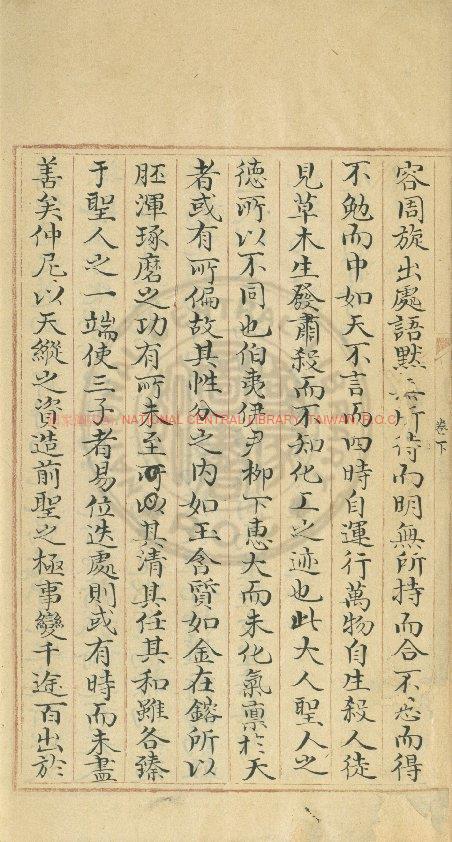 容周旋出處語默無所待而明無所持而合不思而得
不勉而中如天不言而四時自運行萬物自生殺人徒
見草木生發肅殺而不知化工之迹也此大人聖人之
德所以不同也伯夷伊尹柳下惠大而未化氣禀於天
者或有所偏故其性分之內如玉含質如金在鎔所以
胚渾琢磨之功有所未至所以其清其任其和雖各臻
于聖人之一端使三子者易位迭處則或有時而未盡
善矣仲尼以天縱之資造前聖之極事變千途百出於
卷下
NATIONAL CENTRAL LIBRARY, TAIWAN, R.O.C.